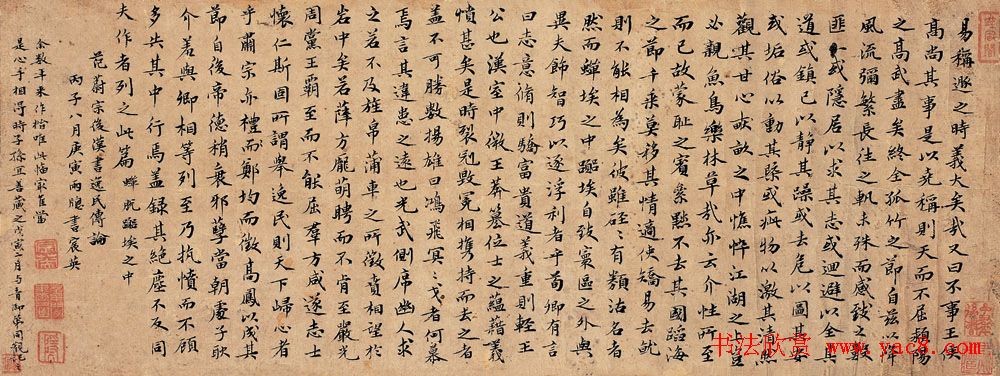 易稱遯之時義大矣哉又曰不事王侯
高尚其事是以堯稱則天而不屈潁陽
之高武盡矣終全孤竹之節自茲以降
風流彌繁長往之軌未殊而感致之數
匪一或隱居以求其志或迴避以全其
道或鎮己以靜其躁或去危以圖其安
或垢俗以動其槩或疵物以激其清然
觀其甘心畝之中憔悴江湖之上豈
必親魚鳥樂林草哉亦云介性所至
而已故蒙恥之賓屢黜不去其國蹈海
之節千乘莫移其情適使矯易去就
則不能相為矣彼雖硜〻有類沽名者
然而蟬埃之中躧埃自致寰區之外與
異夫飾智巧以逐浮利者乎荀卿有言
曰志意脩則驕富貴道義重則輕王
公也漢室中微王莽篡位士之蘊藉義
憤甚矣是時裂冠毀冕相攜持而去之者
蓋不可勝數揚雄曰鴻飛冥〻弋者何慕
焉言其違患之遠也光武側席幽人求
之若不及旌帛蒲車之所徵賁相望於
岩中矣若薛方龐萌聘而不肯至嚴光
周黨王霸至而不能屈羣方咸遂志士
懷仁斯固所謂舉逸民則天下歸心者
乎肅宗亦禮鄭均而徵高鳳以成其
節自後帝德稍衰邪孽當朝處子耿
介羞與卿相等列至乃抗憤而不顧
多失其中行焉蓋錄其絕塵不反同
夫作者列之此篇 蟬蛻躧埃之中
范蔚宗後漢書逸民傳論
丙子八月庚寅雨牕書宸英
余數年來作楷唯此幅最當
是心手相得時子孫宜善藏之戊寅二月与青御弟同觀記
书法欣赏 www.yac8.com